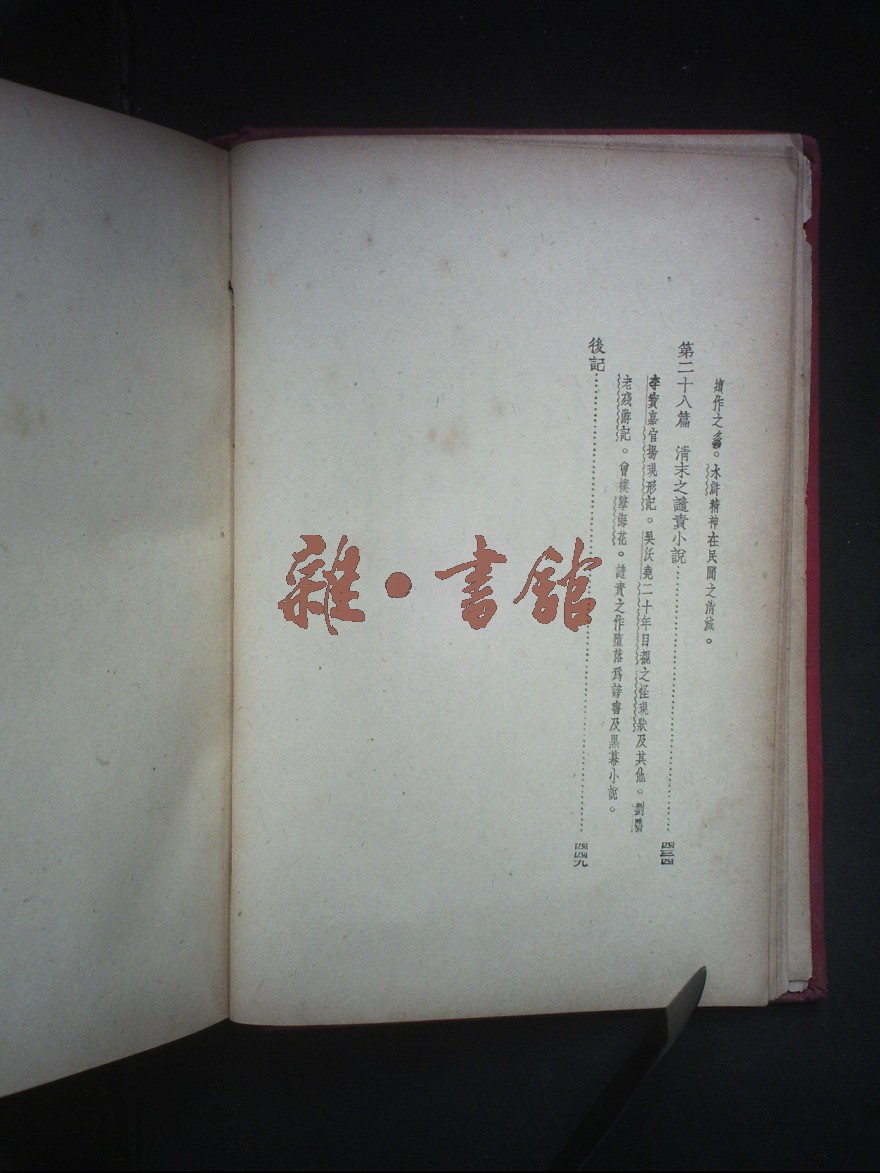 續作之多。水滸精神在民間之消滅。
第二十八篇 清末之譴責小說……………………四三四
李寶嘉官場現形記。吳沃堯二十年目覩之怪現狀及其他。劉鶚
老殘遊記。曾樸孽海花。譴責之作墮落爲謗書及黑幕小說。
後記……………………四四九
雜·書館